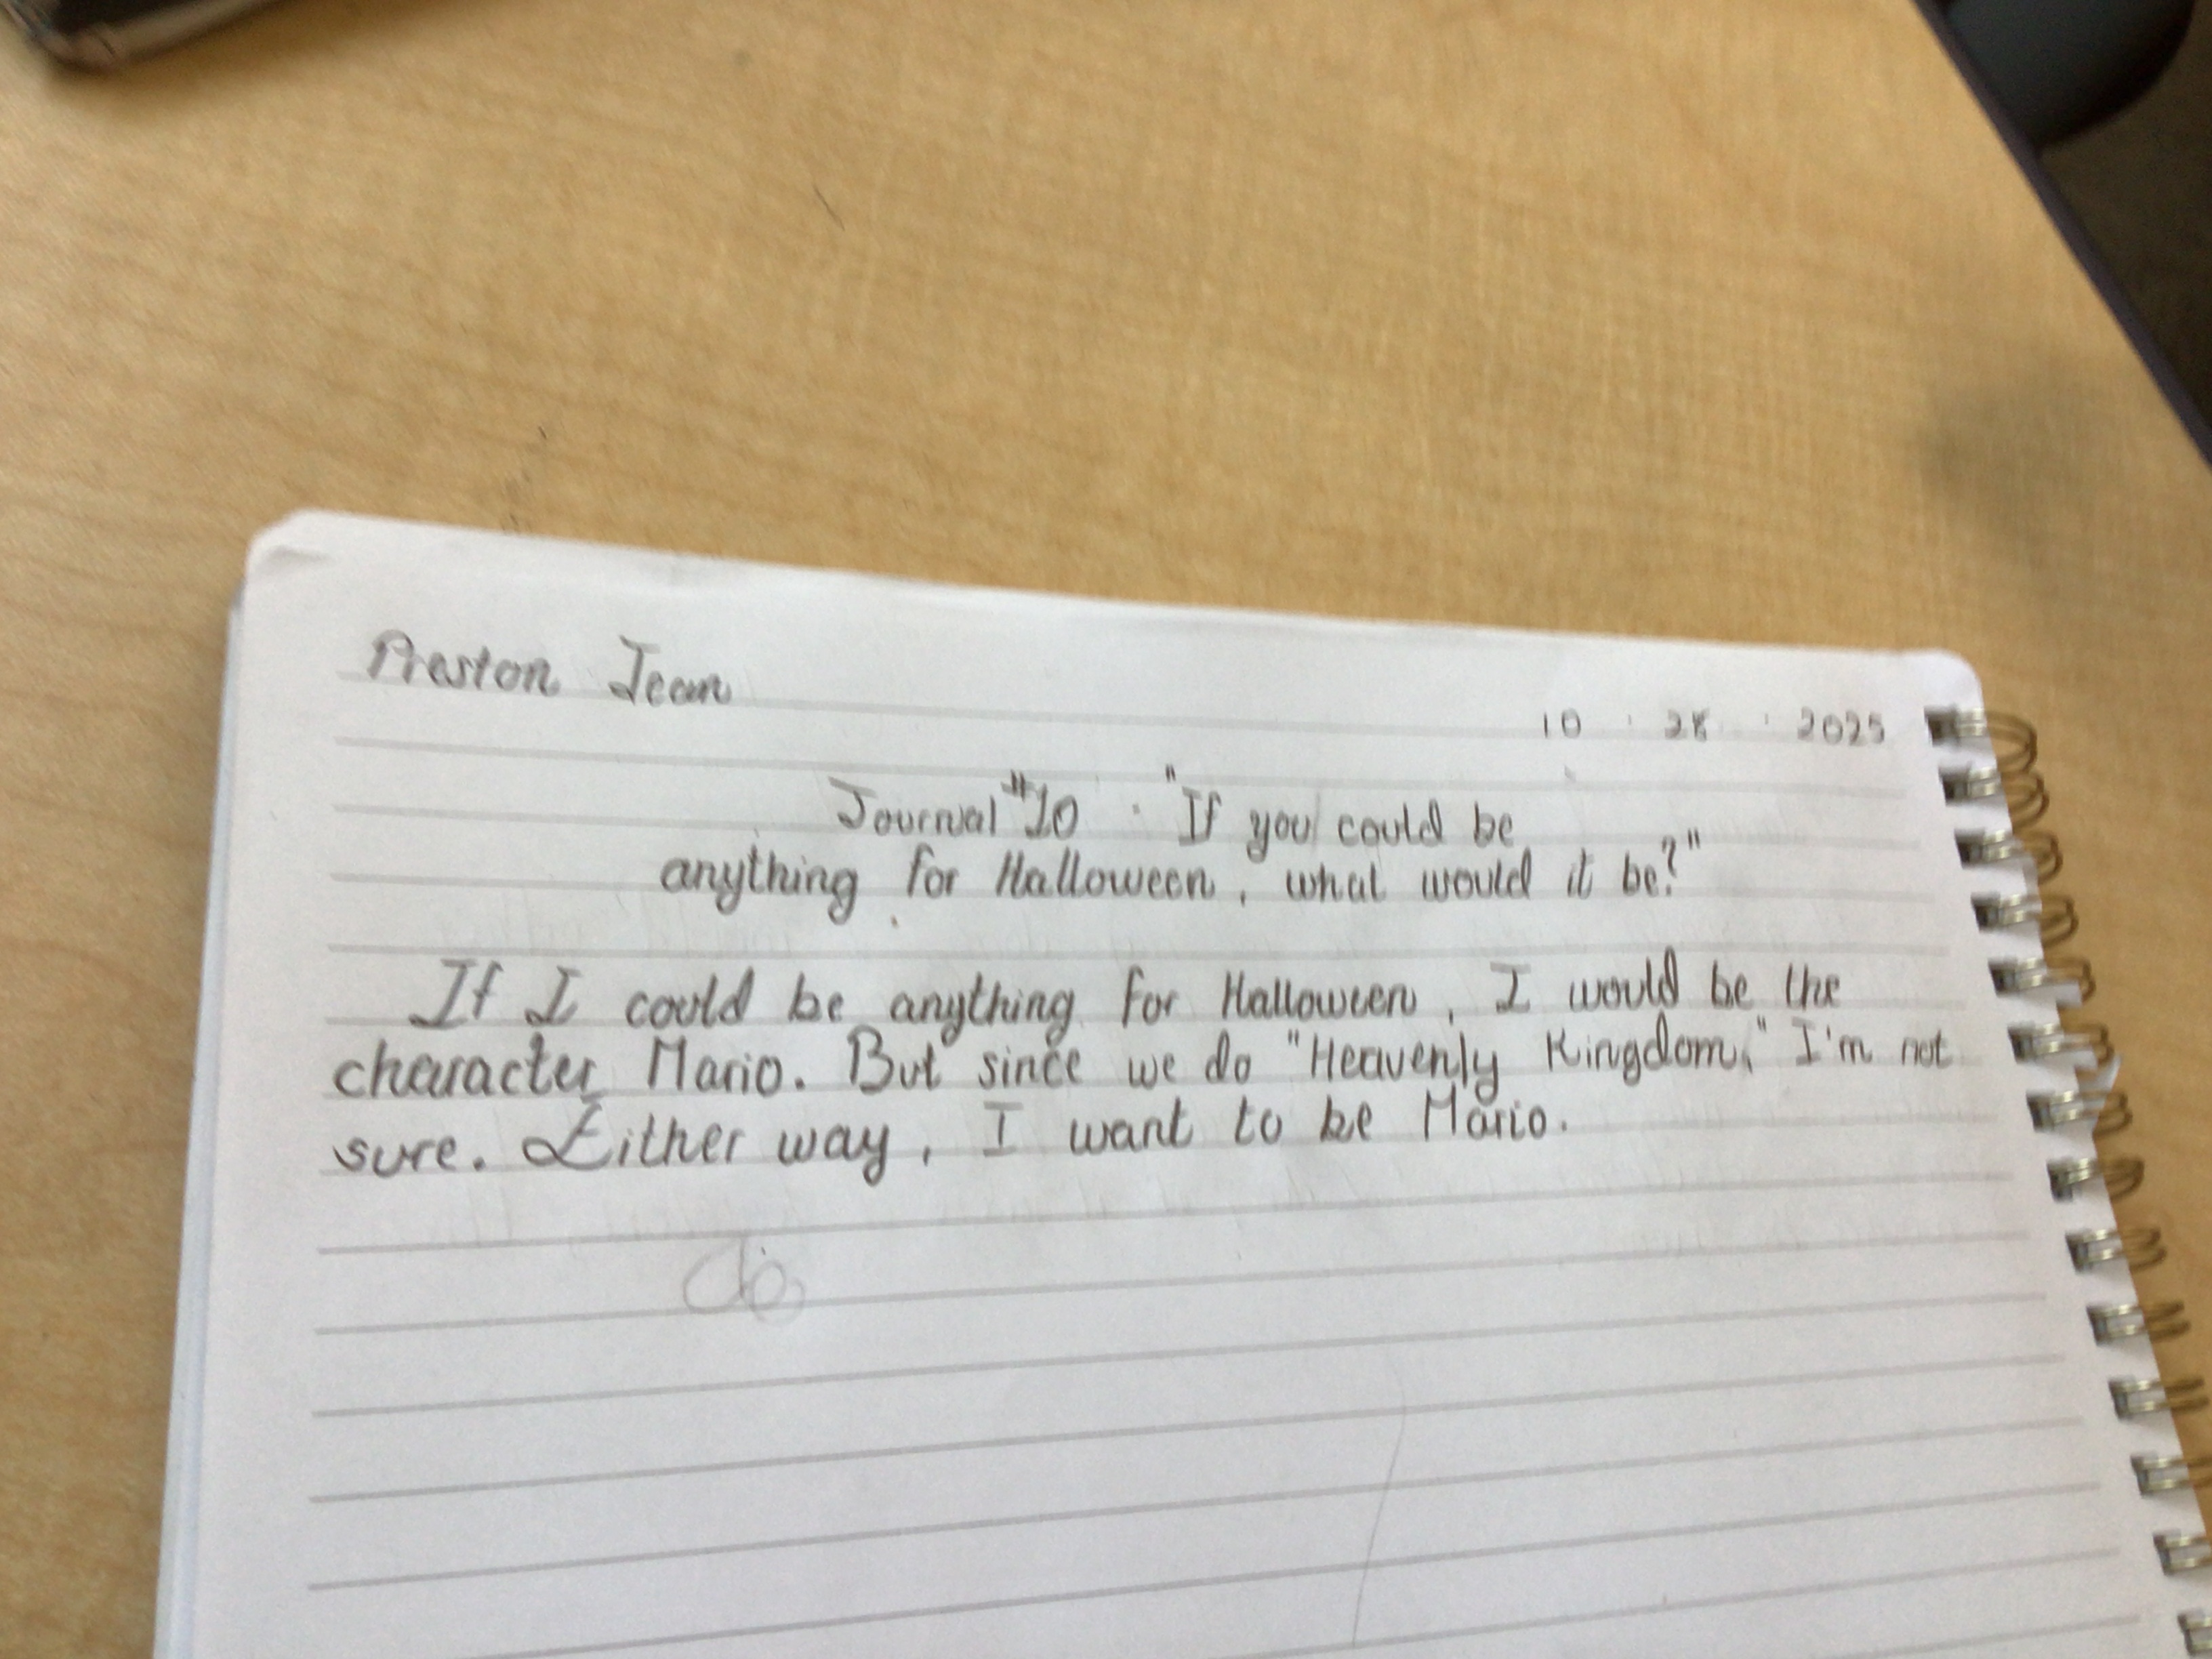 Preston Jean
10 · 28 · 2025
Journal #10 · "If you could be
anything for Halloween, what would it be?"
If I could be anything for Halloween, I would be the
character Mario. But since we do "Heavenly Kingdom," I'm not
sure. Either way, I want to be Mario.